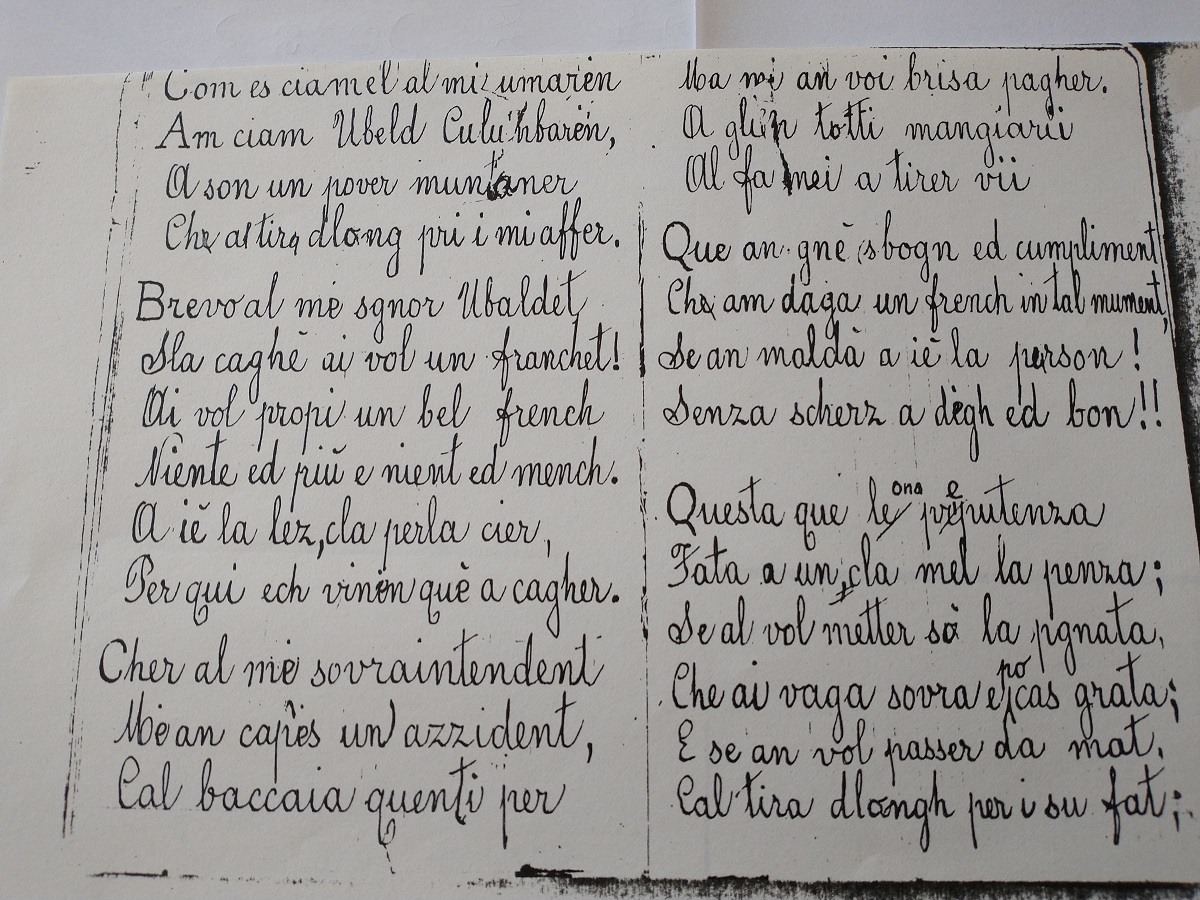 Com es ciamel al mi umarén
Am ciam Ubeld Culuhbarén,
A son un pover muntaner
Che al tira dlong pri i mi affer.
Brevo al me sgnor Ubaldet
Sla caghè ai vol un franchet!
Ai vol propi un bel french
Niente ed piŭ e nient ed mench.
A iĕ la lez, cla perla cier,
Per qui ech vinén què a cagher.
Cher al mè sovraintendent
Mè an capès un azzident,
Cal baccaia quenti per
Ma mi an voi brisa pagher.
A glién totti mangiarii
Al fa mei a tirer vii
Que an gnĕ sbogn ed cumpliment
Che am daga un french in tal mument,
Se an maldà a iĕ la person!
Senza scherz a dègh ed bon!!
Questa que le ona preputenza
Fata a un, cla mel la penza;
Se al vol metter sò la pgnata,
Che ai vaga sovra e po cas grata;
E se an vol passer da mat,
Cal tira dlongh per i su fat;